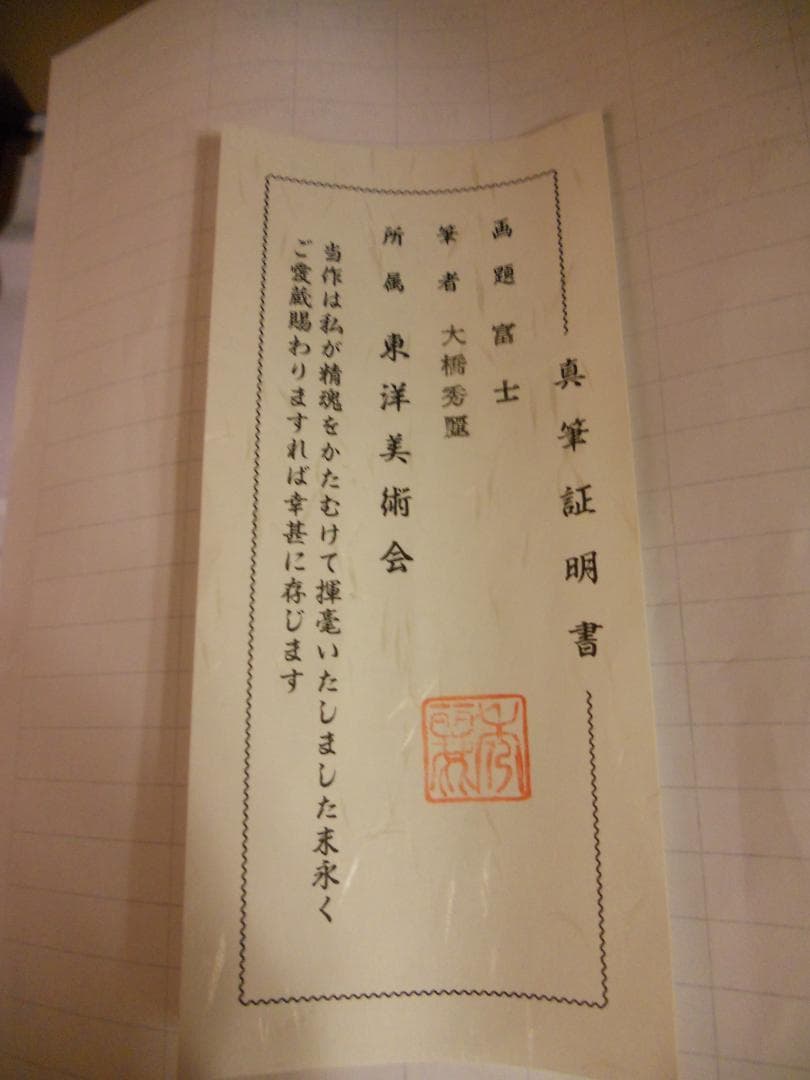 真筆証明書
画題 富士
筆者 大橋秀
所属 東洋美術会
当作は私が精魂をかたむけて揮毫いたしました末永く
ご愛蔵賜わりますれば幸甚に存じます